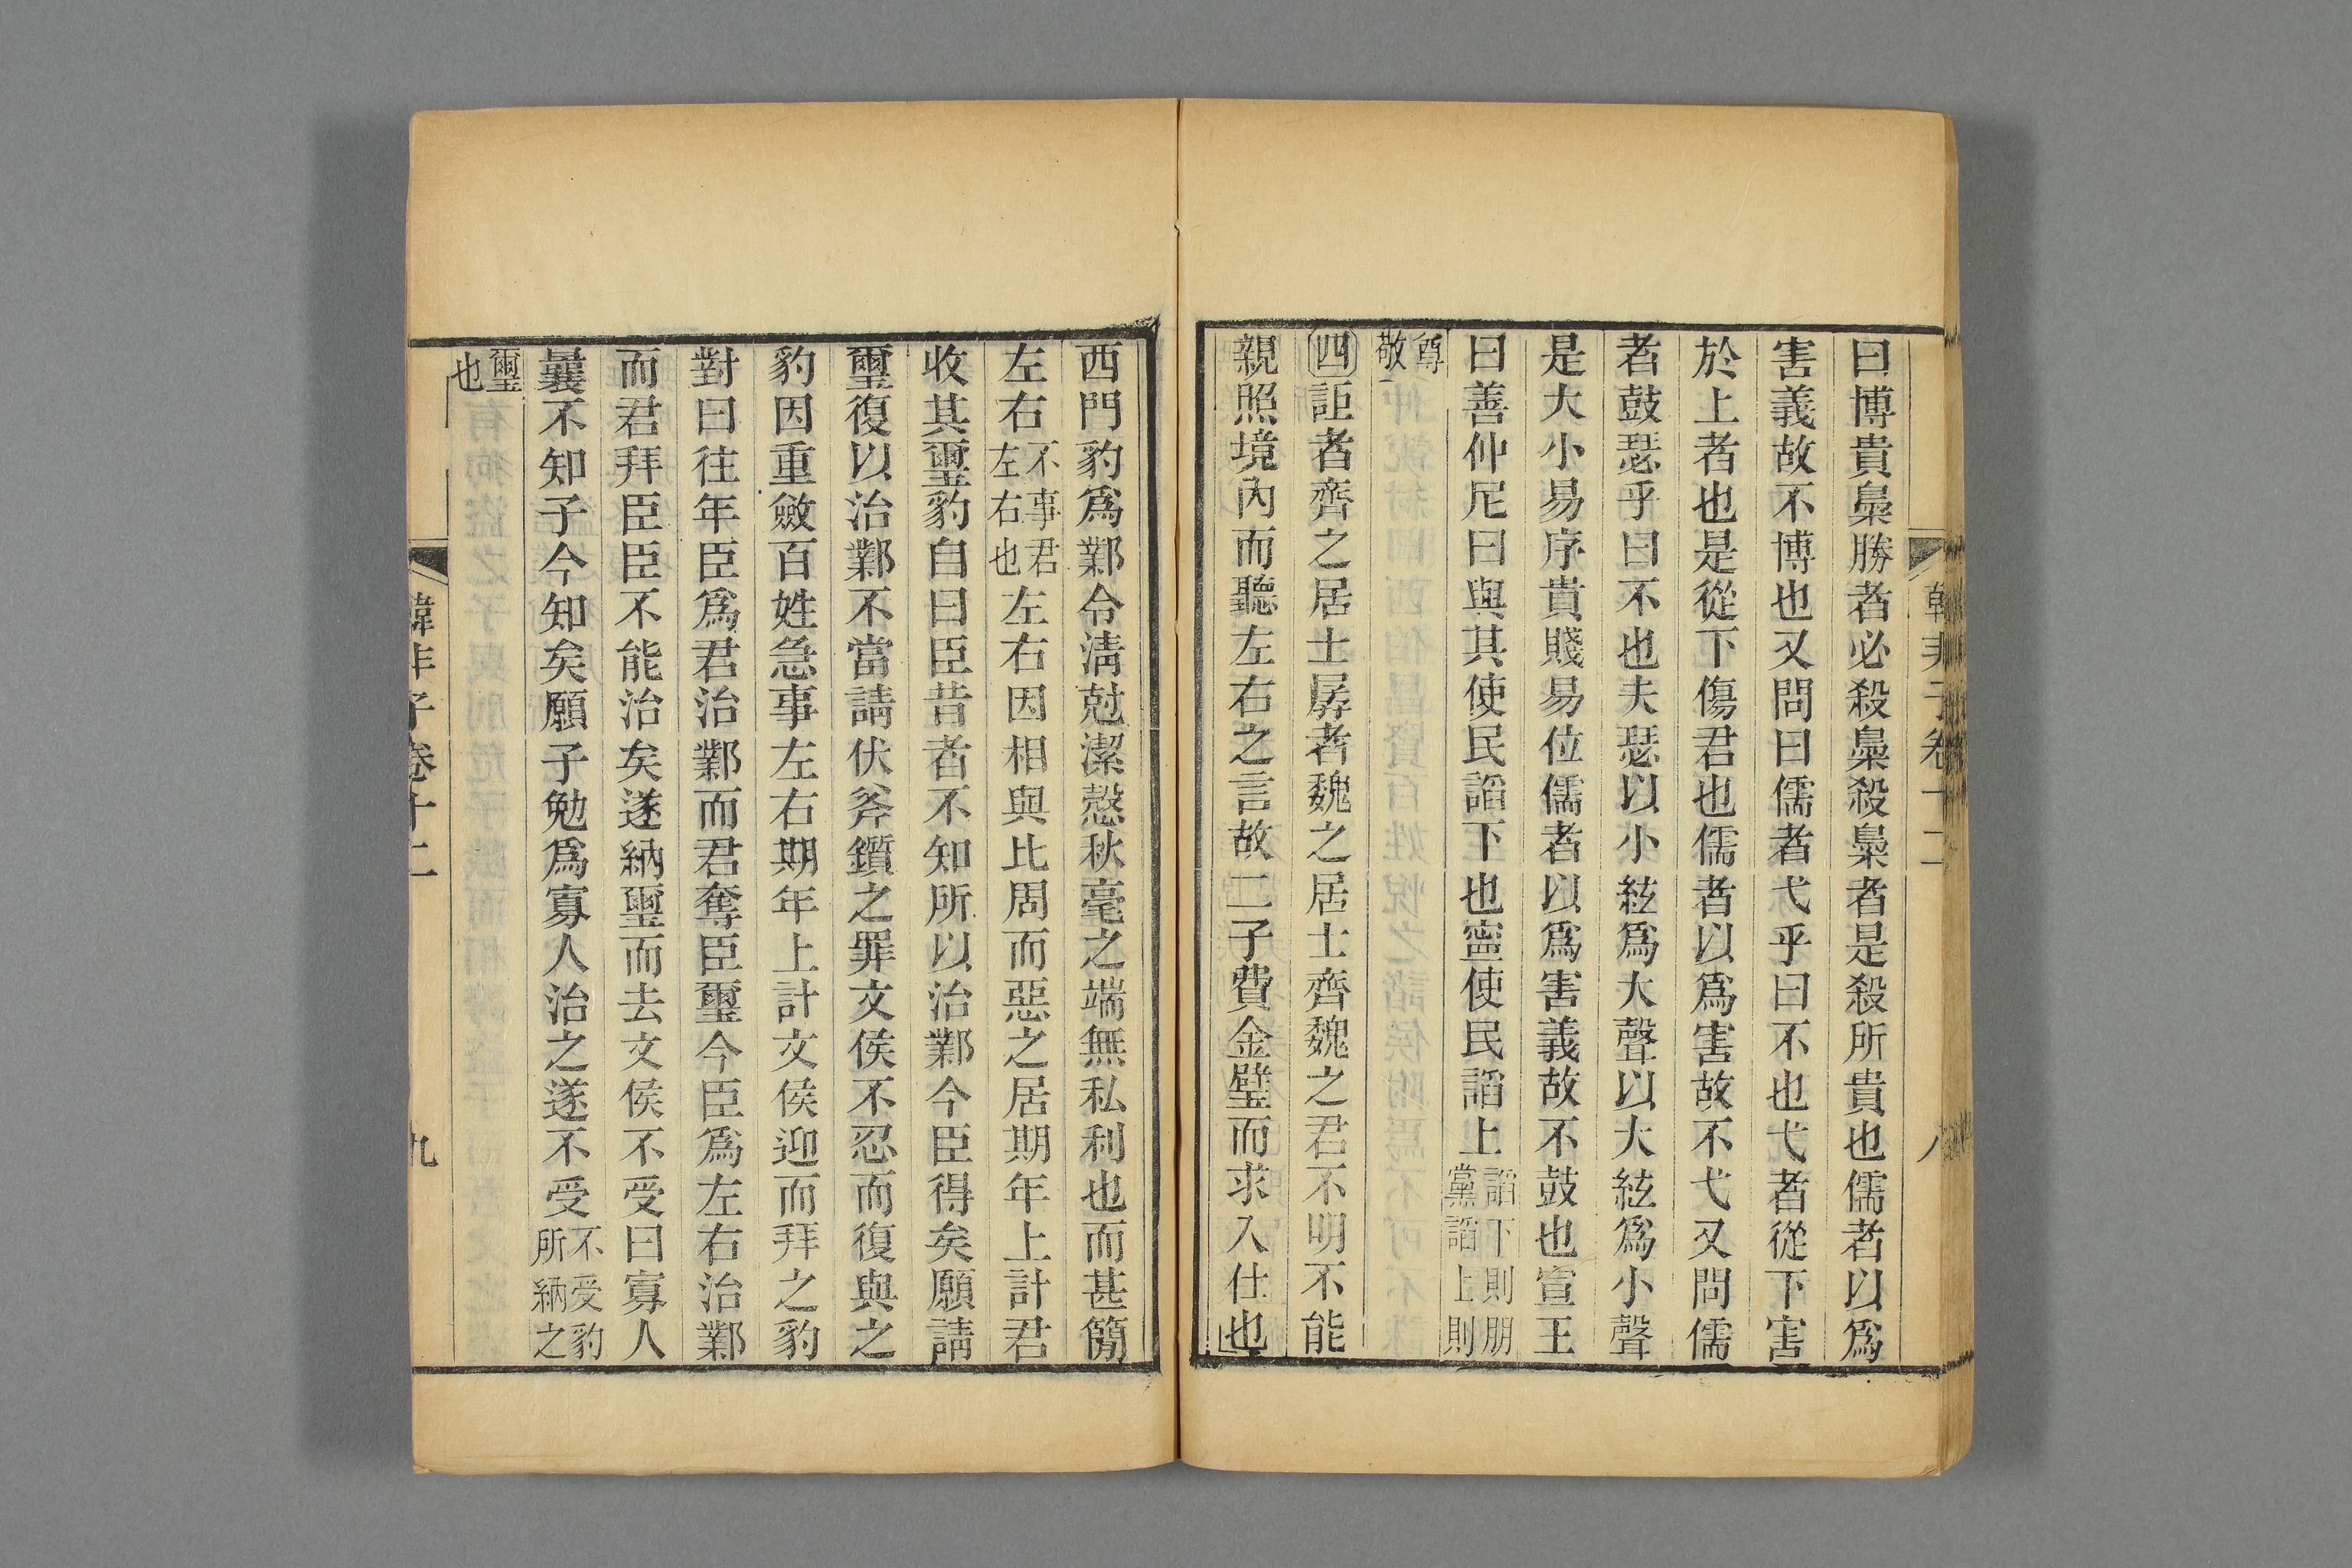 韓非子卷十二 八
曰博貴梟勝者必殺梟殺梟者是殺所貴也儒者以爲
害義故不博也又問曰儒者弋乎曰不也弋者從下害
於上者也是從下傷君也儒者以爲害故不弋又問儒
者鼓瑟乎曰不也夫瑟以小絃爲大聲以大絃爲小聲
是大小易序貴賤易位儒者以爲害義故不鼓也宣王
曰善仲尼曰與其使民謟下也寧使民謟上謟下則朋黨謟上則
尊敬
四詎者齊之居士孱者魏之居士齊魏之君不明不能
親照境內而聽左右之言故二子費金璧而求入仕也
西門豹爲鄴令淸尅潔慤秋毫之端無私利也而甚簡
左右不事君左右也左右因相與比周而惡之居期年上計君
收其璽豹自曰臣昔者不知所以治鄴今臣得矣願請
璽復以治鄴不當請伏斧鑕之罪文侯不忍而復與之
豹因重斂百姓急事左右期年上計文侯迎而拜之豹
對曰往年臣爲君治鄴而君奪臣璽今臣爲左右治鄴
而君拜臣臣不能治矣遂納璽而去文侯不受曰寡人
曩不知子今知矣願子勉爲寡人治之遂不受不受豹所納之
璽也
韓非子卷十二 九